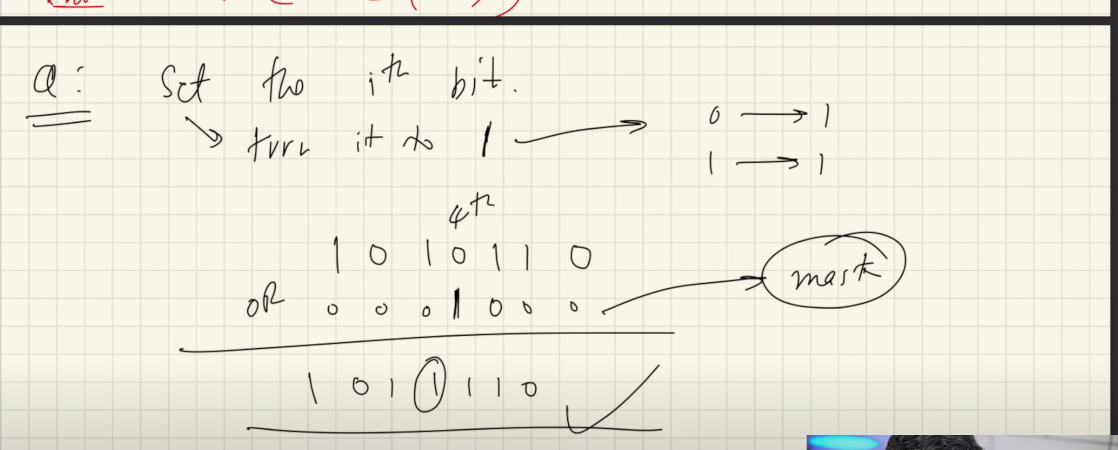 Q: Set the ith bit.
turn it to 1 → 0 → 1
1 → 1
4th
1 0 1 0 1 1 0
OR 0 0 0 1 0 0 0 → mask
1 0 1 1 1 1 0